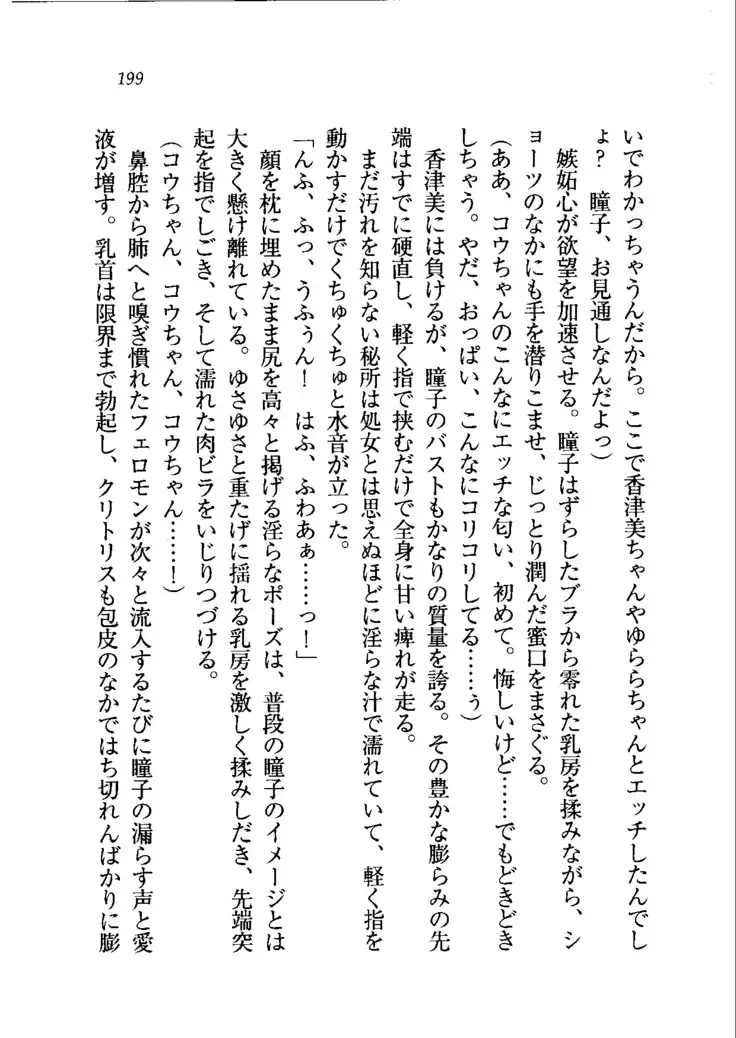 199
いでわかっちゃうんだから。ここで香津美ちゃんやゆららちゃんとエッチしたんでし
ょ？　瞳子、お見通しなんだよっ）
嫉妬心が欲望を加速させる。瞳子はずらしたブラから零れた乳房を揉みながら、シ
ョーツのなかにも手を潜りこませ、じっとり潤んだ蜜口をまさぐる。
（ああ、コウちゃんのこんなにエッチな匂い、初めて。悔しいけど……でもどきどき
しちゃう。やだ、おっぱい、こんなにコリコリしてる……ぅ）
香津美には負けるが、瞳子のバストもかなりの質量を誇る。その豊かな膨らみの先
端はすでに硬直し、軽く指で挟むだけで全身に甘い痺れが走る。
まだ汚れを知らない秘所は処女とは思えぬほどに淫らな汁で濡れていて、軽く指を
動かすだけでくちゅくちゅと水音が立った。
「んふ、ふっ、うふぅん！　はふ、ふわあぁ……っ！」
顔を枕に埋めたまま尻を高々と掲げる淫らなポーズは、普段の瞳子のイメージとは
大きく懸け離れている。ゆさゆさと重たげに揺れる乳房を激しく揉みしだき、先端突
起を指でしごき、そして濡れた肉ビラをいじりつづける。
（コウちゃん、コウちゃん、コウちゃん……！）
鼻腔から肺へと嗅ぎ慣れたフェロモンが次々と流入するたびに瞳子の漏らす声と愛
液が増す。乳首は限界まで勃起し、クリトリスも包皮のなかではち切れんばかりに膨